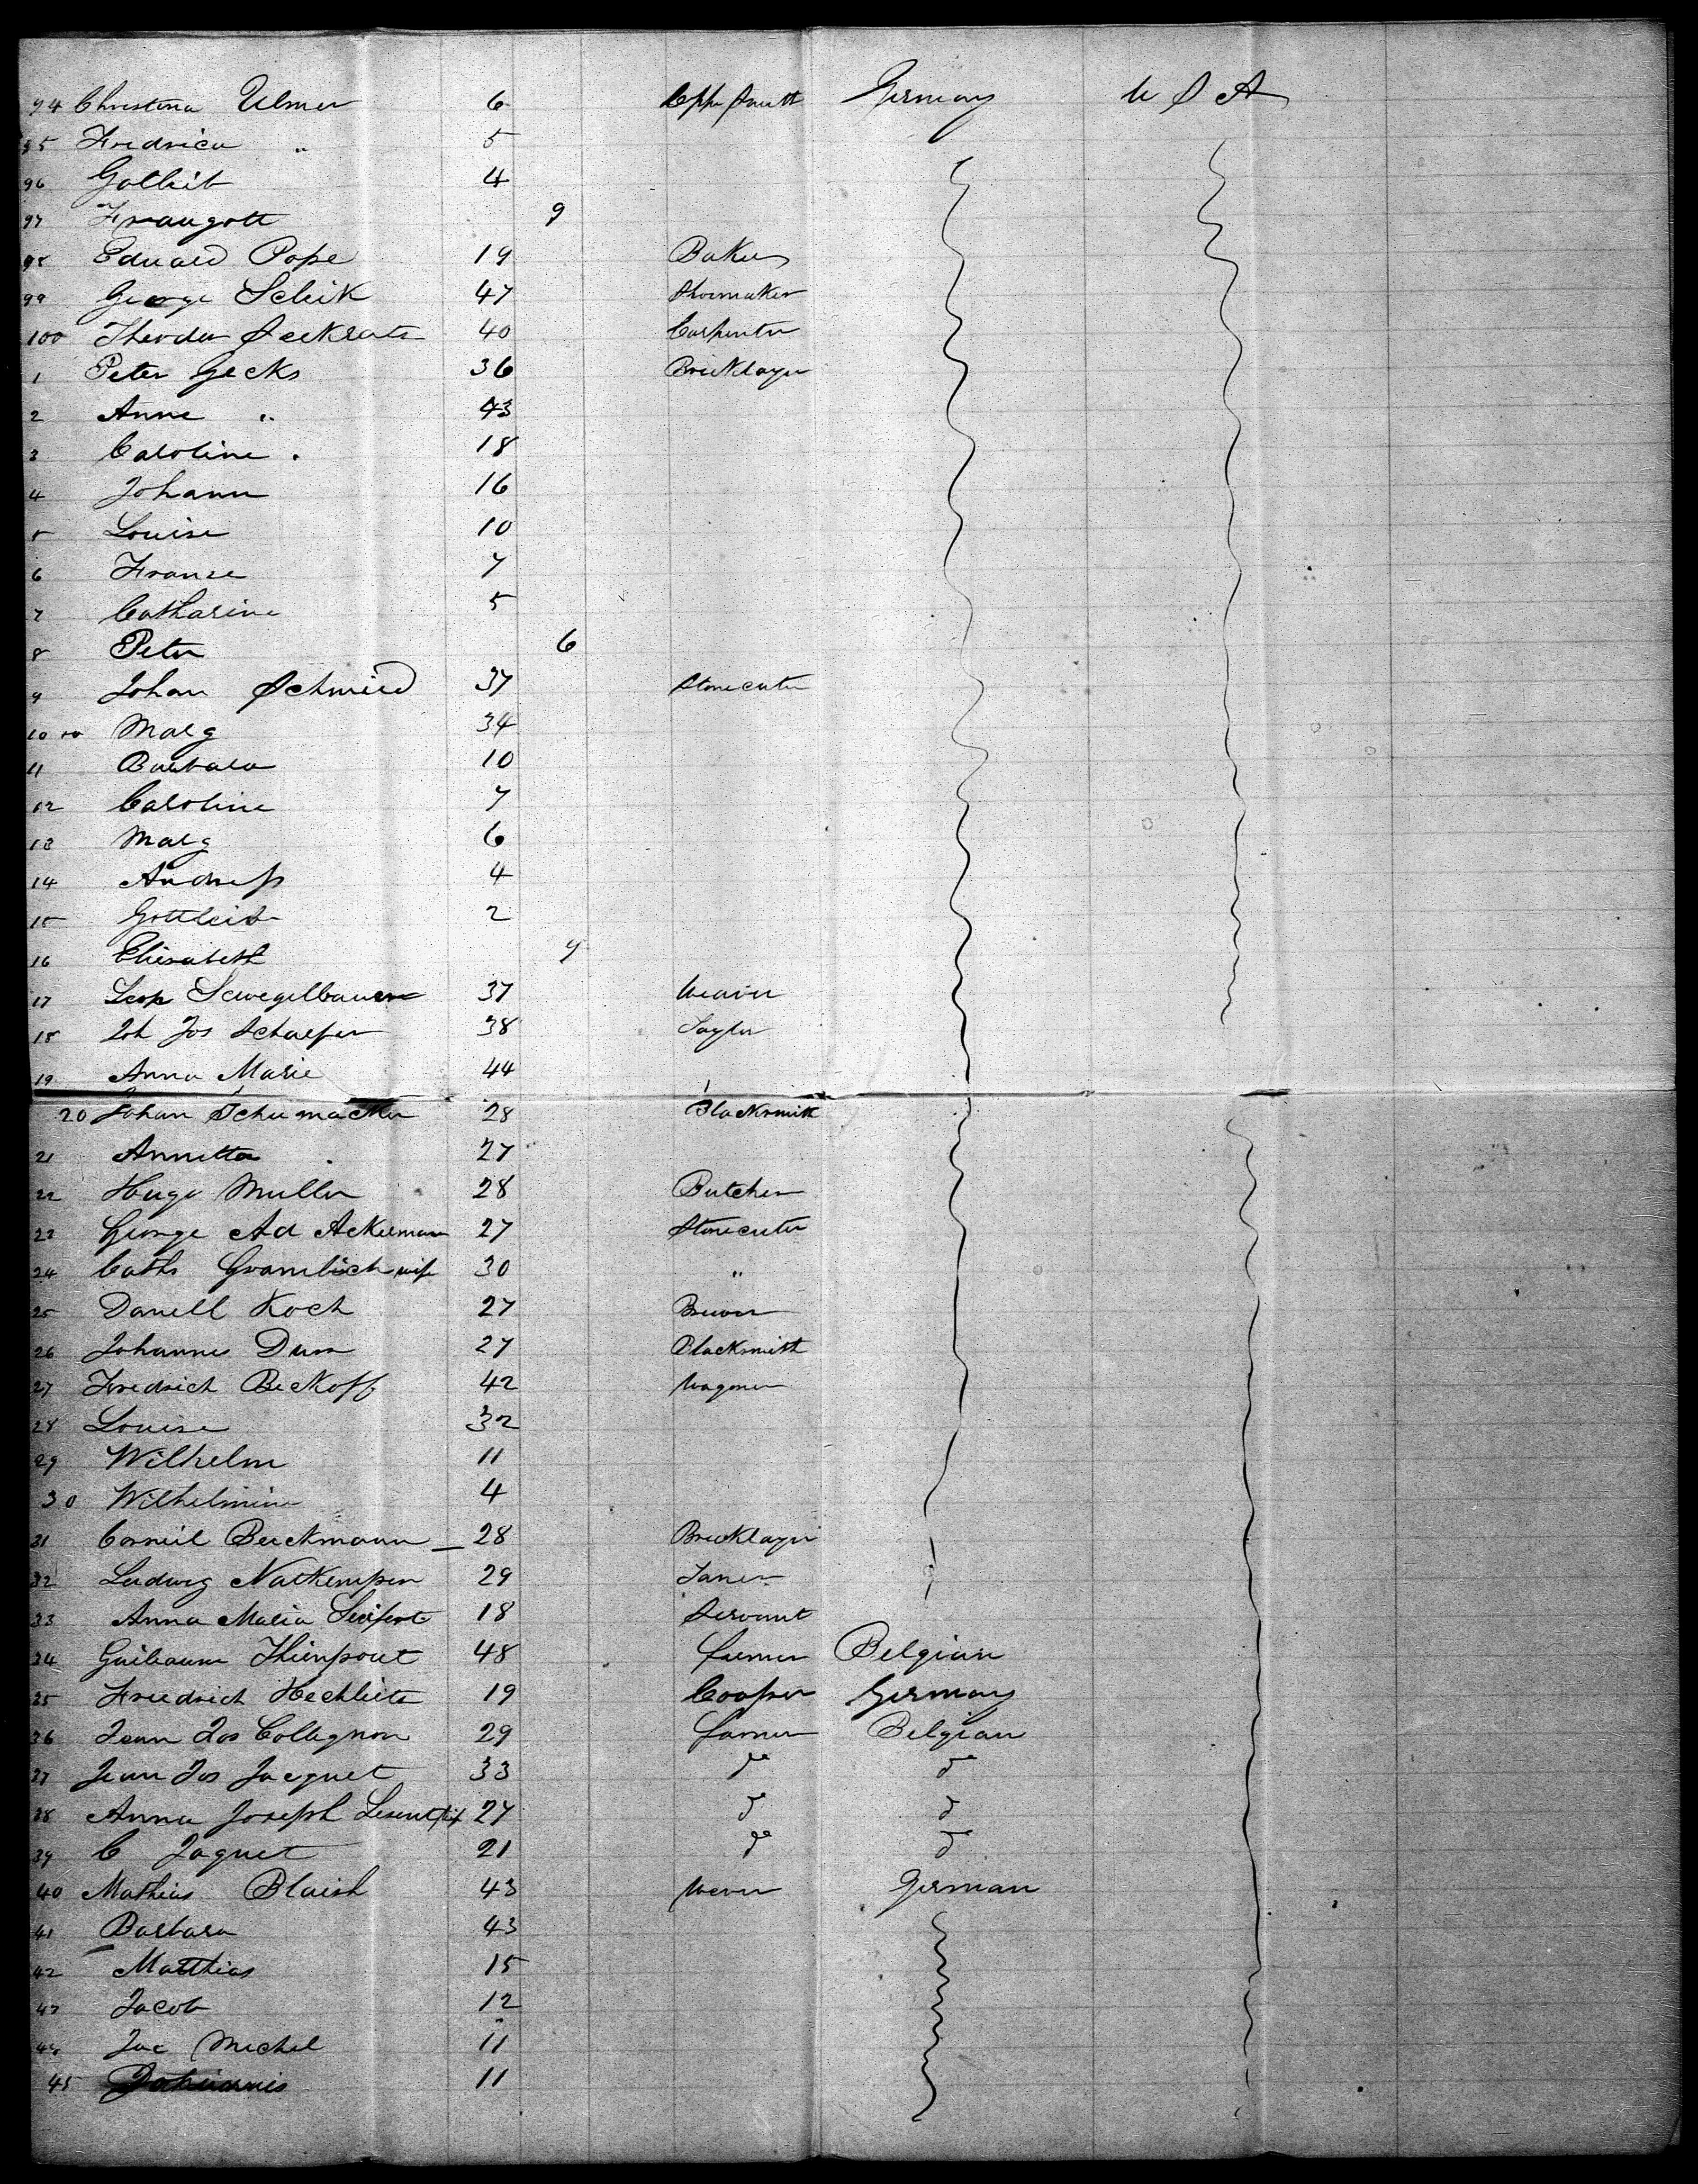 94 Christina Ulmer 6 Germany U S A
95 Fredrica " 5
96 4
97 9
98 Eduard Pope 19 Baker
99 George Scheik 47 Shoemaker
100 Theodor 40 Carpenter
1 Peter Gecks 36 Bricklayer
2 Anne " 43
3 Caroline . 18
4 Johann 16
5 Louise 10
6 Franze 7
7 Catharine 5
8 Peter 6
9 Johan Schmied 37 Stonecuter
10 Marg 34
11 Barbara 10
12 Caroline 7
13 Marg 6
14 4
15 Gottleib 2
16 Elisabeth 9
17 37 Weaver
18 Joh Jos Schaefer 38 Taylor
19 Anna Marie 44
20 Johan Schumacker 28 Blacksmith
21 Annetta 27
22 Hugo Muller 28 Butcher
23 George Ad Ackerman 27 Stonecuter
24 Cath Gramlich wife 30 "
25 Danell Koch 27 Brewer
26 Johannes Dum 27 Blacksmith
27 Friedrich Beckoff 42 Wagoner
28 Louise 32
29 Wilhelm 11
30 Wilhelmine 4
31 Corneil Beckmann 28 Bricklayer
32 Ludwig 29 Taner
33 Anna Maria 18 Servant
34 Guibaum Thienpout 48 farmer Belgian
35 Friedrich Hechleite 19 Cooper Germany
36 Jean Jos Collegnon 29 farmer Belgian
37 Jean Jos Jacquet 33 do do
38 Anna Joseph 27 do do
39 C Jaquet 21 do do
40 Mathias Blaish 43 Wever German
41 Barbara 43
42 Matthias 15
43 Jacob 12
44 Jac Michel 11
45 11